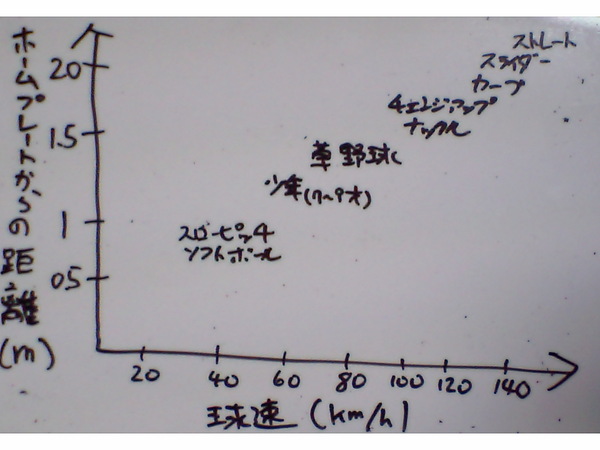 ホームプレートからの距離(m)
2.0
1.5
1
0.5
ストレート
スライダー
カーブ
チェンジアップ
ナックル
草野球
少年(7~9才)
スローピッチ
ソフトボール
20 40 60 80 100 120 140
球速(km/h)